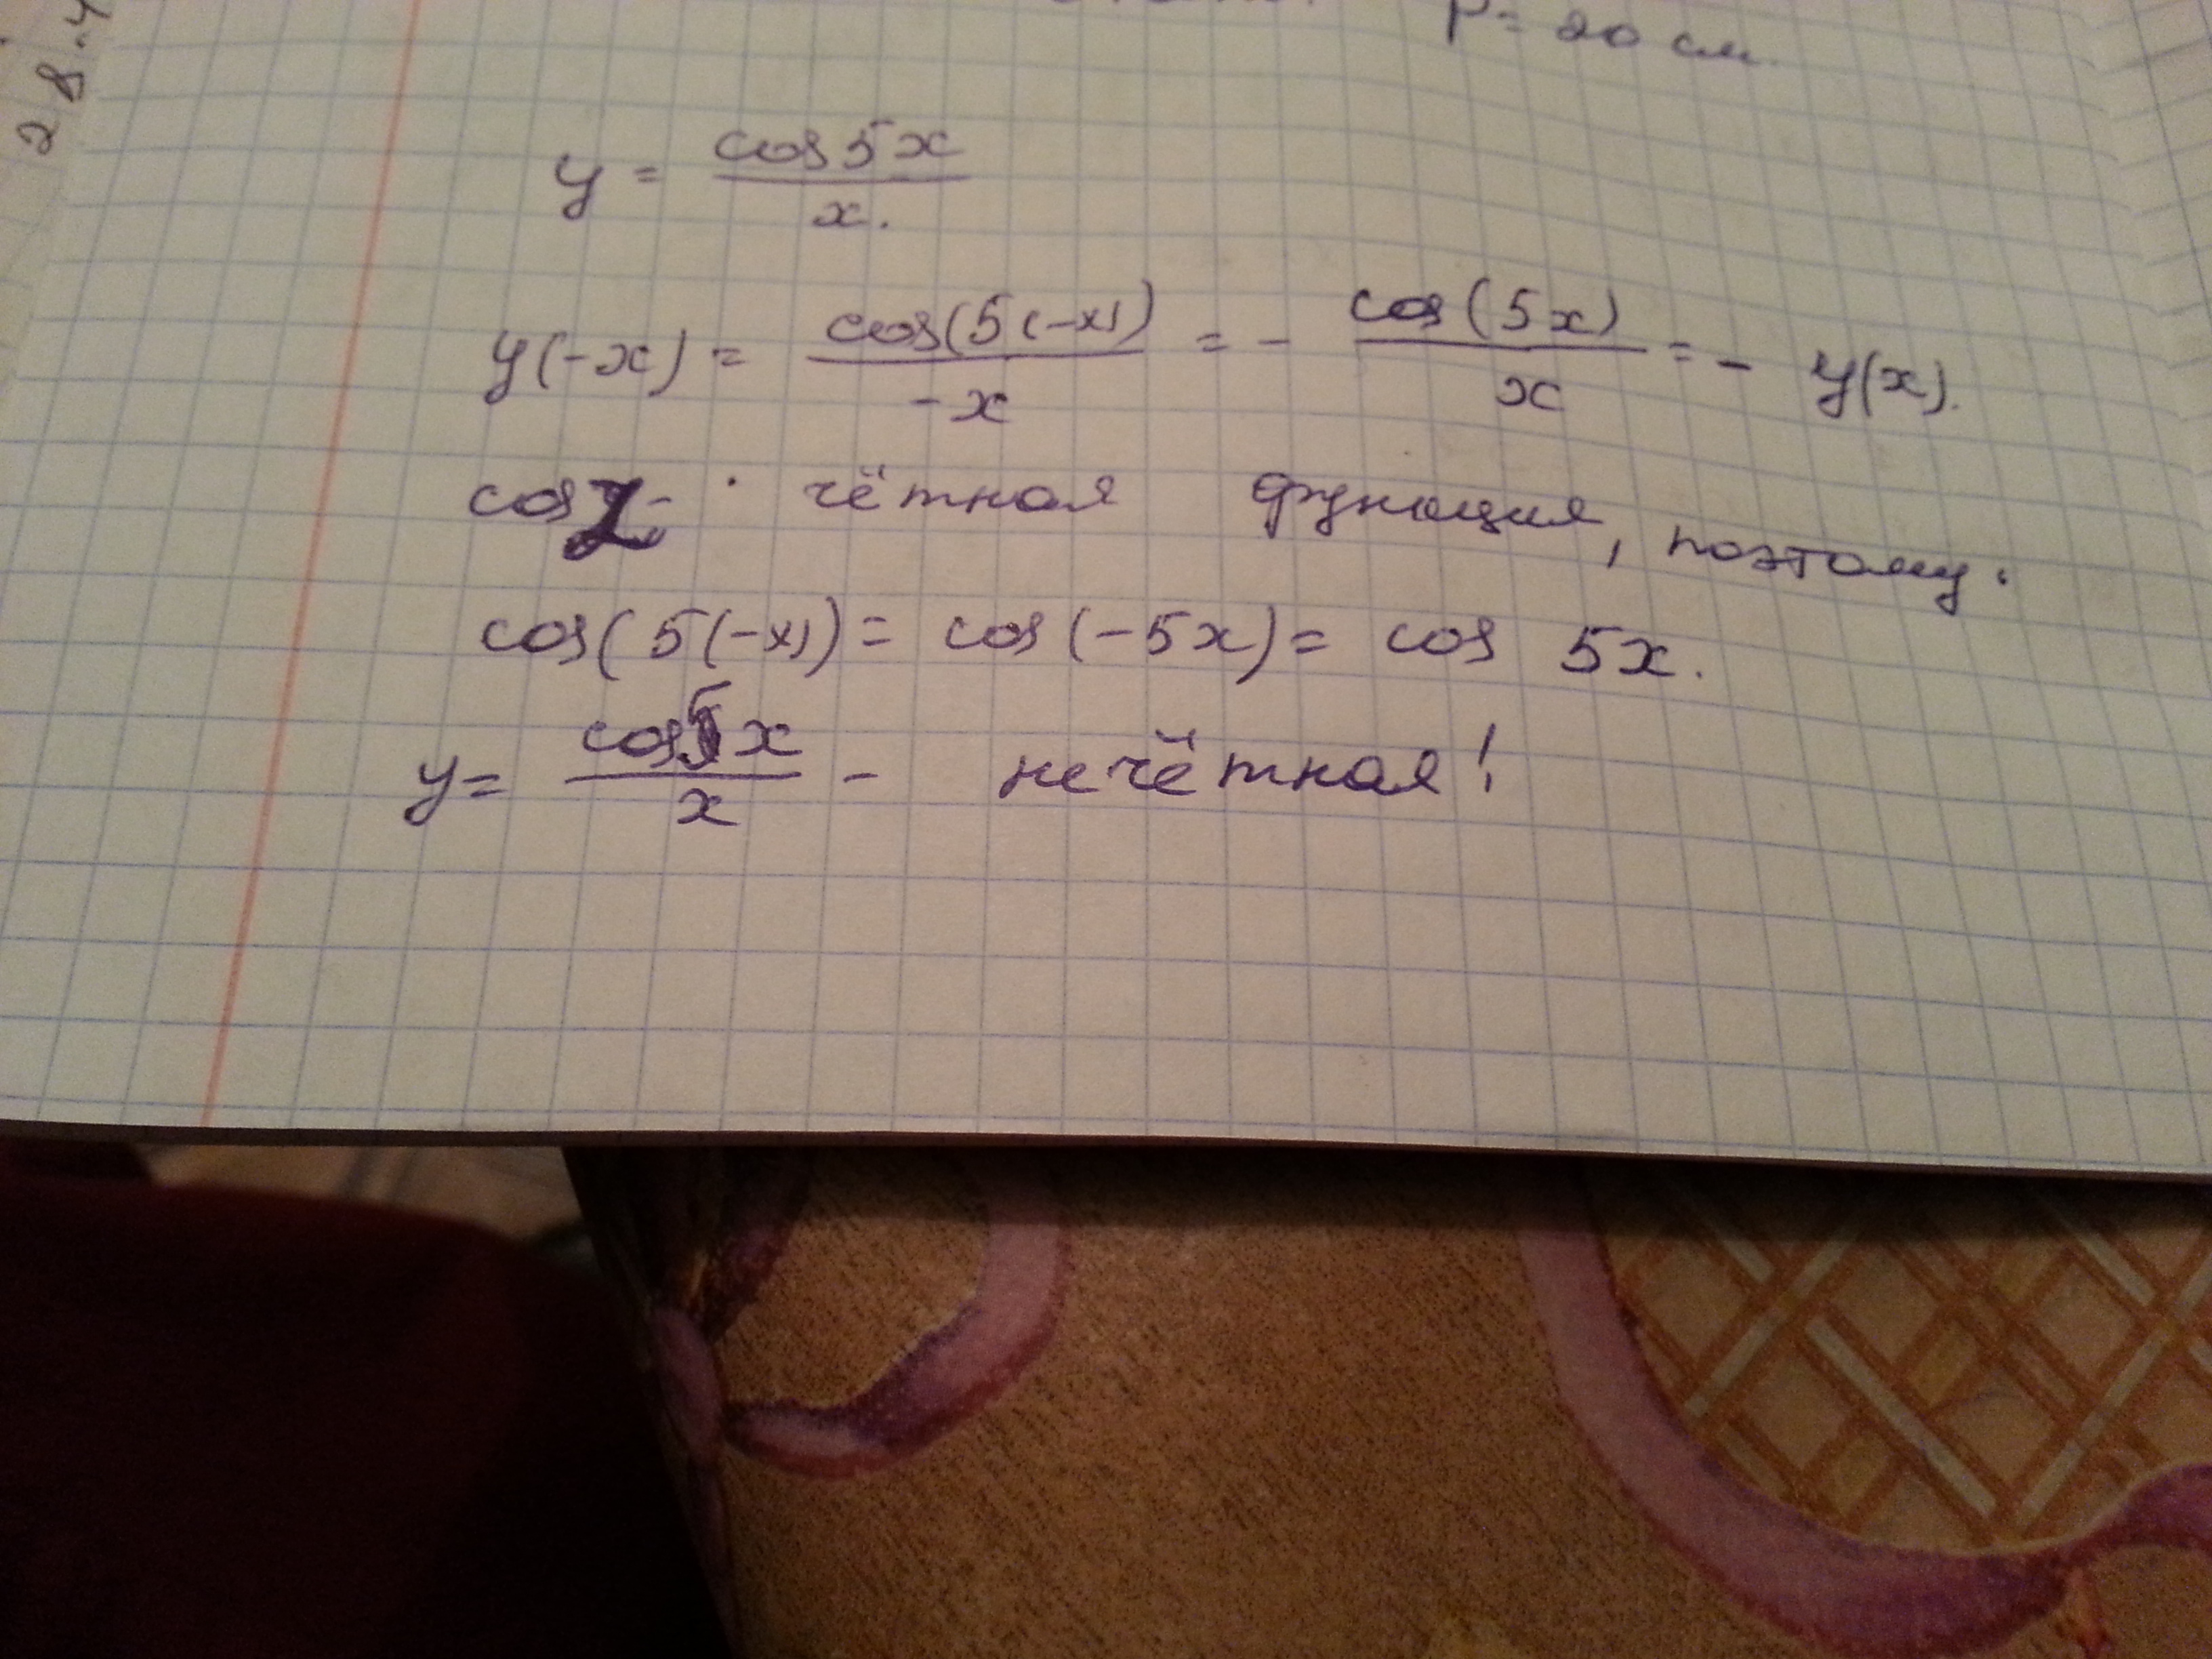 P = 20 см
28.4
y = cos 5x / x.
y(-x) = cos(5(-x)) / -x = - cos(5x) / x = - y(x).
cos z - чётная функция, поэтому.
cos(5(-x)) = cos(-5x) = cos 5x.
y = cos 5x / x - нечётная!